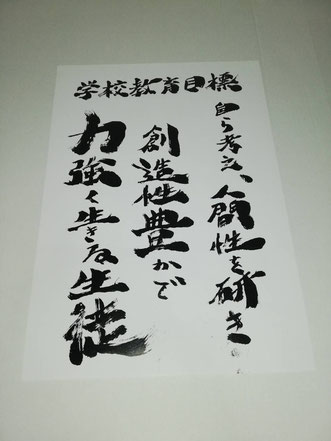 学校教育目標
自ら考え、人間性を研き
創造性豊かで
力強く生きる生徒